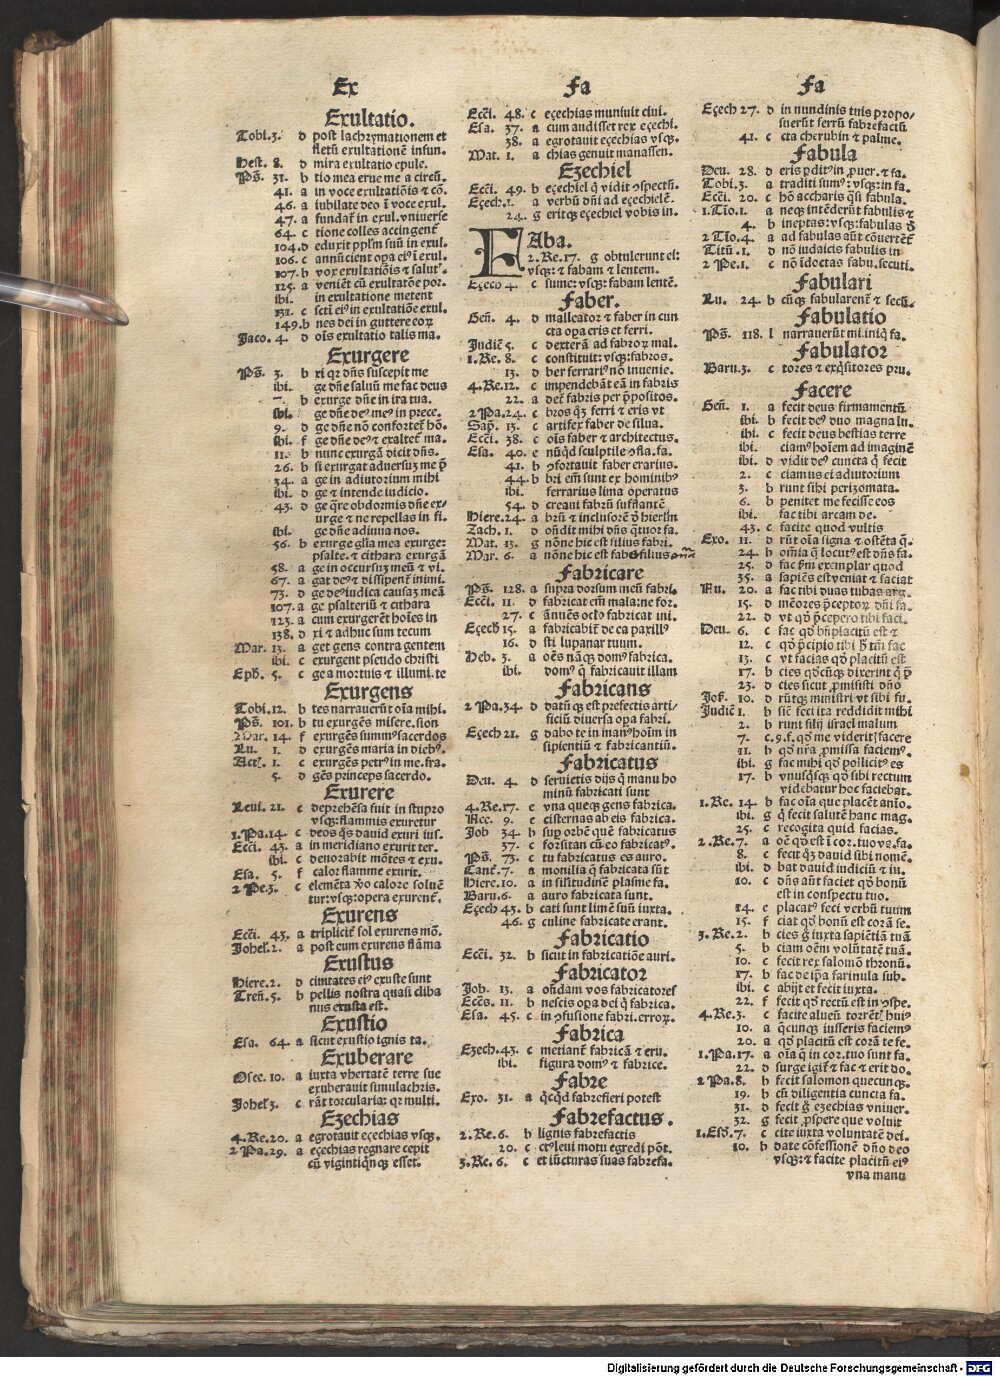 Ex
Exultatio.
Tobi.3. d post lachrymationem et
fletū exultationē infun.
Hest. 8. d mira exultatio epule.
Ps. 31. b tio mea erue me a circū.
41. a in voce exultatiōis ⁊ cō.
46. a iubilate deo ī voce exul.
47. a fundaƭ in exul. vniuerse
64. c tione colles accingenƭ
104. d eduxit pplm suū in exul.
106. c annūcient opa eiꝰ ī exul.
107. b vox exultatiōis ⁊ salutꝭ.
125. a veniēt cū exultatōe por.
ibi. in exultatione metent
131. c scti eiꝰ in exultatiōe exul.
149. b nes dei in gutture eoꝝ
Jaco. 4. d oīs exultatio talis ma.
Exurgere
Ps. 3. b xi qr dn̄s suscepit me
ibi. ge dn̄e saluū me fac deus
7. b exurge dn̄e in ira tua.
ibi. ge dn̄e deꝰ meꝰ in prece.
9. d ge dn̄e nō confortet̄ hō.
ibi. f ge dn̄e deꝰ ⁊ exaltet̄ ma.
11. b nunc exurgā dicit dn̄s.
26. b si exurgat aduersuꝫ me p̄
34. a ge in adiutorium mihi
ibi. d ge ⁊ intende iudicio.
43. d ge q̄re obdormis dn̄e ex/
urge ⁊ ne repellas in fi.
ibi. ge dn̄e adiuua nos.
56. b exurge gl̄ia mea exurge:
psalte. ⁊ cithara exurgā
58. a ge in occursuꝫ meū ⁊ vi.
67. a gat deꝰ ⁊ dissipent̄ inimi.
73. d ge deꝰ iudica causaꝫ meā
107. a ge psalteriū ⁊ cithara
123. a cum exurgerēt hoīes in
138. d xi ⁊ adhuc sum tecum
Mar. 13. a get gens contra gentem
ibi. c exurgent pseudo christi
Eph. 5. c ge a mortuis ⁊ illumi. te
Exurgens
Tobi. 12. b tes narrauerūt oīa mihi.
Ps. 101. b tu exurgēs misere. sion
Mar. 14. f exurgēs summꝰ sacerdos
Lu. 1. d exurgēs maria in diebꝰ.
Act. 1. c exurgēs petrꝰ in me. fra.
5. d gēs princeps sacerdo.
Exurere
Leui. 21. c deprehēsa fuit in stupro
vsqꝫ: flammis exuretur
1. Pa. 14. c deos q̄s dauid exuri ius.
Ecci. 43. a in meridiano exurit ter.
ibi. c deuorabit mōtes ⁊ exu.
Esa. 5. f calor flamme exurit.
2 Pe. 3. c elemēta v̓o calore soluē
tur: vsqꝫ: opera exurent̄.
Exurens
Ecci. 43. a tripliciƭ sol exurens mō.
Johel. 2. a post cum exurens flāma
Exustus
Hiere. 2. d ciuitates eiꝰ exuste sunt
Tren̄. 5. b pellis nostra quasi cliba
nus exusta est.
Exustio
Esa. 64. a sicut exustio ignis ta.
Exuberare
Osee. 10. a iuxta vbertatē terre sue
exuberauit simulachris.
Johel 3. c rāt torcularia: qr multi.
Ezechias
4. Re. 20. a egrotauit eçechias vsqꝫ.
2 Pa. 29. a eçechias regnare cepit
cū vigintiqnqꝫ esset.
Fa
Ecci. 48. c eçechias muniuit ciui.
Esa. 37. a cum audisset rex eçechi.
38. a egrotauit eçechias vsqꝫ.
Mat. 1. a chias genuit manassen.
Ezechiel
Ecci. 49. b eçechiel q̄ vidit ꝯspectū.
Eçech. 1. a verbū dn̄i ad eçechielē.
24. g eritqꝫ eçechiel vobis in.
FAba.
2. Re. 17. g obtulerunt ei:
vsqꝫ: ⁊ fabam ⁊ lentem.
Eçech 4. c sume: vsqꝫ: fabam lentē.
Faber.
Gen̄. 4. d malleator ⁊ faber in cun
cta opa eris et ferri.
Judic̄ 5. c dexterā ad fabroꝝ mal.
1. Re. 8. c constituit: vsqꝫ: fabros.
13. d ber ferrariꝰ nō inuenie.
4. Re. 12. c impendebāt eā in fabris
22. a deƭ fabris per p̄positos.
2 Pa. 24. c bros qꝫ ferri ⁊ eris vt
Sap. 13. c artifex faber de silua.
Ecci. 38. c oīs faber ⁊ architectus.
Esa. 40. e nūqd sculptile ꝯfla. fa.
41. b ꝯfortauit faber erarius.
44. b bri em̄ sunt ex hominibꝰ
ibi. ferrarius lima operatus
54. d creaui fabrū sufflantē
Hiere. 24. a brū ⁊ inclusorē d̄ hierlm̄
Zach. 1. d on̄dit mihi dn̄s q̄tuor fa.
Mat. 13. g nōne hic est filius fabri.
Mar. 6. a nōne hic est faber filius
Fabricare
Ps. 128. a supra dorsum meū fabri.
Ecci. 11. d fabricat em̄ mala: ne for.
27. c ānuēs oclo fabricat ini.
Eçech 15. a fabricabit̄ de ea paxillꝰ
16. d sti lupanar tuum.
Heb. 3. a oēs nāqꝫ domꝰ fabrica.
ibi. domꝰ q̄ fabricauit illam
Fabricans
2 Pa. 34. d datū qꝫ est prefectis arti/
ficiū diuersa opa fabri.
Eçech 21. g dabo te in manꝰ hoīm in
sipientiū ⁊ fabricantiū.
Fabricatus
Deu. 4. d seruietis dijs q̄ manu ho
minū fabricati sunt
4. Re. 17. e vna queqꝫ gens fabrica.
Nee. 9. e cisternas ab eis fabrica.
Job 34. b sup orbē quē fabricatus
37. c forsitan cū eo fabricatꝰ.
Ps. 73. c tu fabricatus es auro.
Canƭ. 7. a monilia q̄ fabricata sūt
Hiere. 10. a in silitudinē plasme fa.
Baru. 6. a auro fabricata sunt.
Eçech 43. b cati sunt limē suū iuxta.
46. g culine fabricate erant.
Fabricatio
Ecci. 32. b sicut in fabricatiōe auri.
Fabricator
Job. 13. a on̄dam vos fabricatores
Ecc̄s. 11. b nescis opa dei q̄ fabrica.
Esa. 45. c in ꝯfusione fabri. erroꝝ.
Fabrica
Ezech. 43. c metianƭ fabricā ⁊ eru.
ibi. figura domꝰ ⁊ fabrice.
Fabre
Exo. 31. a qcqd fabrefieri potest
Fabrefactus.
2. Re. 6. b lignis fabrefactis
20. c ctꝰ leui motu egredi pōt.
3. Re. 6. c et iūcturas suas fabrefa.
Fa
Eçech 27. d in nundinis tuis propo/
suerūt ferrū fabrefactū
41. c cta cherubin ⁊ palme.
Fabula
Deu. 28. d eris pditꝰ in puer. ⁊ fa.
Tobi. 3. a traditi sumꝰ: vsqꝫ: in fa.
Ecci. 20. c hō accharis q̄si fabula.
1. Tīo. 1. a neqꝫ intēderūt fabulis ⁊
4. b ineptas: vsqꝫ: fabulas d̄
2 Tīo. 4. a ad fabulas aūt cōuertēƭ
Titū. 1. d nō iudaicis fabulis in
2 Pe. 1. c nō īdoctas fabu. secuti.
Fabulari
Lu. 24. b cūqꝫ fabularenƭ ⁊ secū.
Fabulatio
Ps. 118. l narrauerūt mi. iniq̄ fa.
Fabulator
Baru. 3. c tores ⁊ exq̄sitores pru.
Facere
Gen̄. 1. a fecit deus firmamentū
ibi. b fecit deꝰ duo magna lu.
ibi. c fecit deus bestias terre
ibi. ciamꝰ hoīem ad imaginē
ibi. d vidit deꝰ cuncta q̄ fecit
2. c ciamus ei adiutorium
3. b runt sibi perizomata.
6. b penitet me fecisse eos
ibi. fac tibi arcam de.
43. c facite quod vultis
Exo. 11. d rūt oīa signa ⁊ ostēta q̄.
24. b om̄ia q̄ locutꝰ est dn̄s fa.
25. d fac scd̄m exemplar quod
35. a sapiēs est veniat ⁊ faciat
Nu. 20. a fac tibi duas tubas arg.
15. d mēores p̄ceptoꝝ dn̄i fa.
22. d vt qd̄ p̄cepero tibi faci.
Deu. 6. c fac qd̄ bn̄placitū est ⁊
12. c qd̄ p̄cipio tibi h̄ tm̄ fac
13. c vt facias qd̄ placitū est
17. b cies qd̄cūqꝫ dixerint q̄ p̄
23. d cies sicut pmisisti dn̄o
Jos. 10. d rūtqꝫ ministri vt sibi fu.
Judic̄ 1. b sic̄ feci ita reddidit mihi
2. b runt filij israel malum
7. c. 9. f. qd̄ me videritꝭ facere
11. b qd̄ nr̄a pmissa faciemꝰ.
ibi. g fac mihi qd̄ pollicitꝰ es
17. b vnusqsqꝫ qd̄ sibi rectum
videbatur hoc faciebat.
1. Re. 14. b fac oīa que placēt anīo.
ibi. g q̄ fecit salutē hanc mag.
25. c recogita quid facias.
2. Re. 7. a oē qd̄ est ī cor. tuo va. fa.
8. c fecit qꝫ dauid sibi nomē.
ibi. d bat dauid iudiciū ⁊ iu.
10. c dn̄s aūt faciet qd̄ bonū
est in conspectu tuo.
14. e placatꝰ feci verbū tuum
15. f ciat qd̄ bonū est corā se.
3. Re. 2. b cies ḡ iuxta sapiētiā tuā
5. b ciam oēm volūtatē tuā.
10. c fecit rex salomō thronū.
17. b fac de ip̄a farinula sub.
ibi. c abijt et fecit iuxta.
22. f fecit qd̄ rectū est in ꝯspe.
4. Re. 3. c facite alueū torrētꝭ huiꝰ
10. a q̄cunqꝫ iusseris faciemꝰ
20. a qd̄ placitū est corā te fe.
1. Pa. 17. a oīa q̄ in cor. tuo sunt fa.
22. d surge igiƭ ⁊ fac ⁊ erit do.
2 Pa. 8. b fecit salomon quecunqꝫ.
19. b cū diligentia cuncta fa.
31. d fecit ḡ ezechias vniuer.
32. g fecit pspere que voluit
1. Esd. 7. c cite iuxta voluntatē dei.
10. b date cōfessionē dn̄o deo
vsqꝫ: ⁊ facite placitū eiꝰ
vna manu
Digitalisierung gefördert durch die Deutsche Forschungsgemeinschaft - DFG